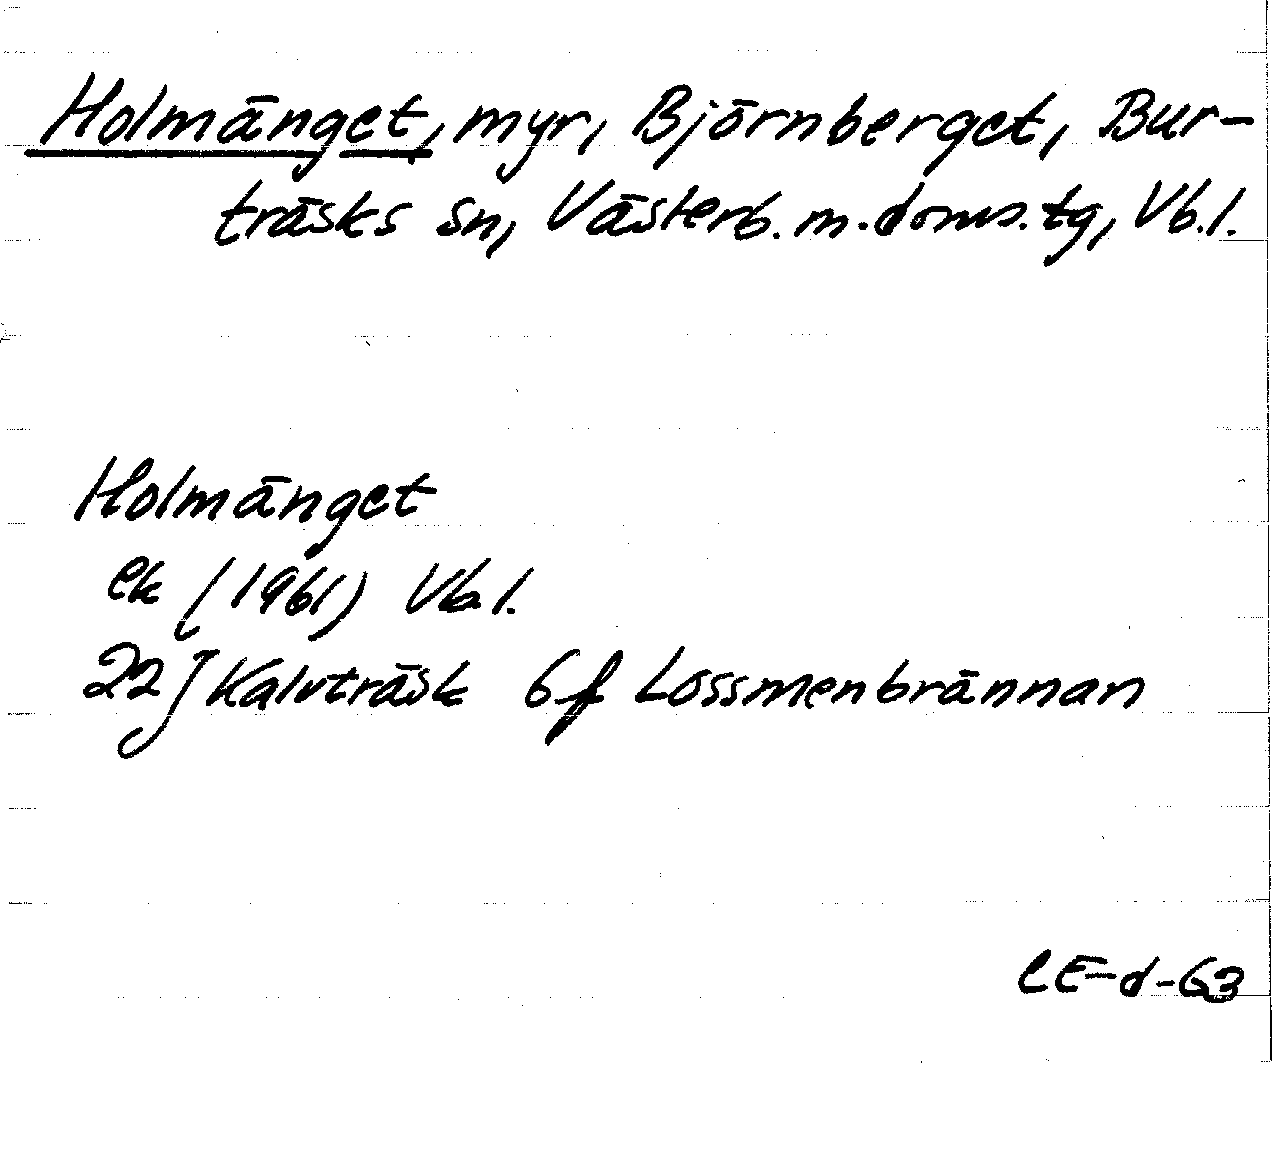 Holmänget, myr, Björnberget, Bur-
träsks sn, Västerb. m. doms. tg, Vb. l.
Holmänget
ek (1961) Vb l.
22 J Kalvträsk 6f Lossmenbrännan
CE-d-63